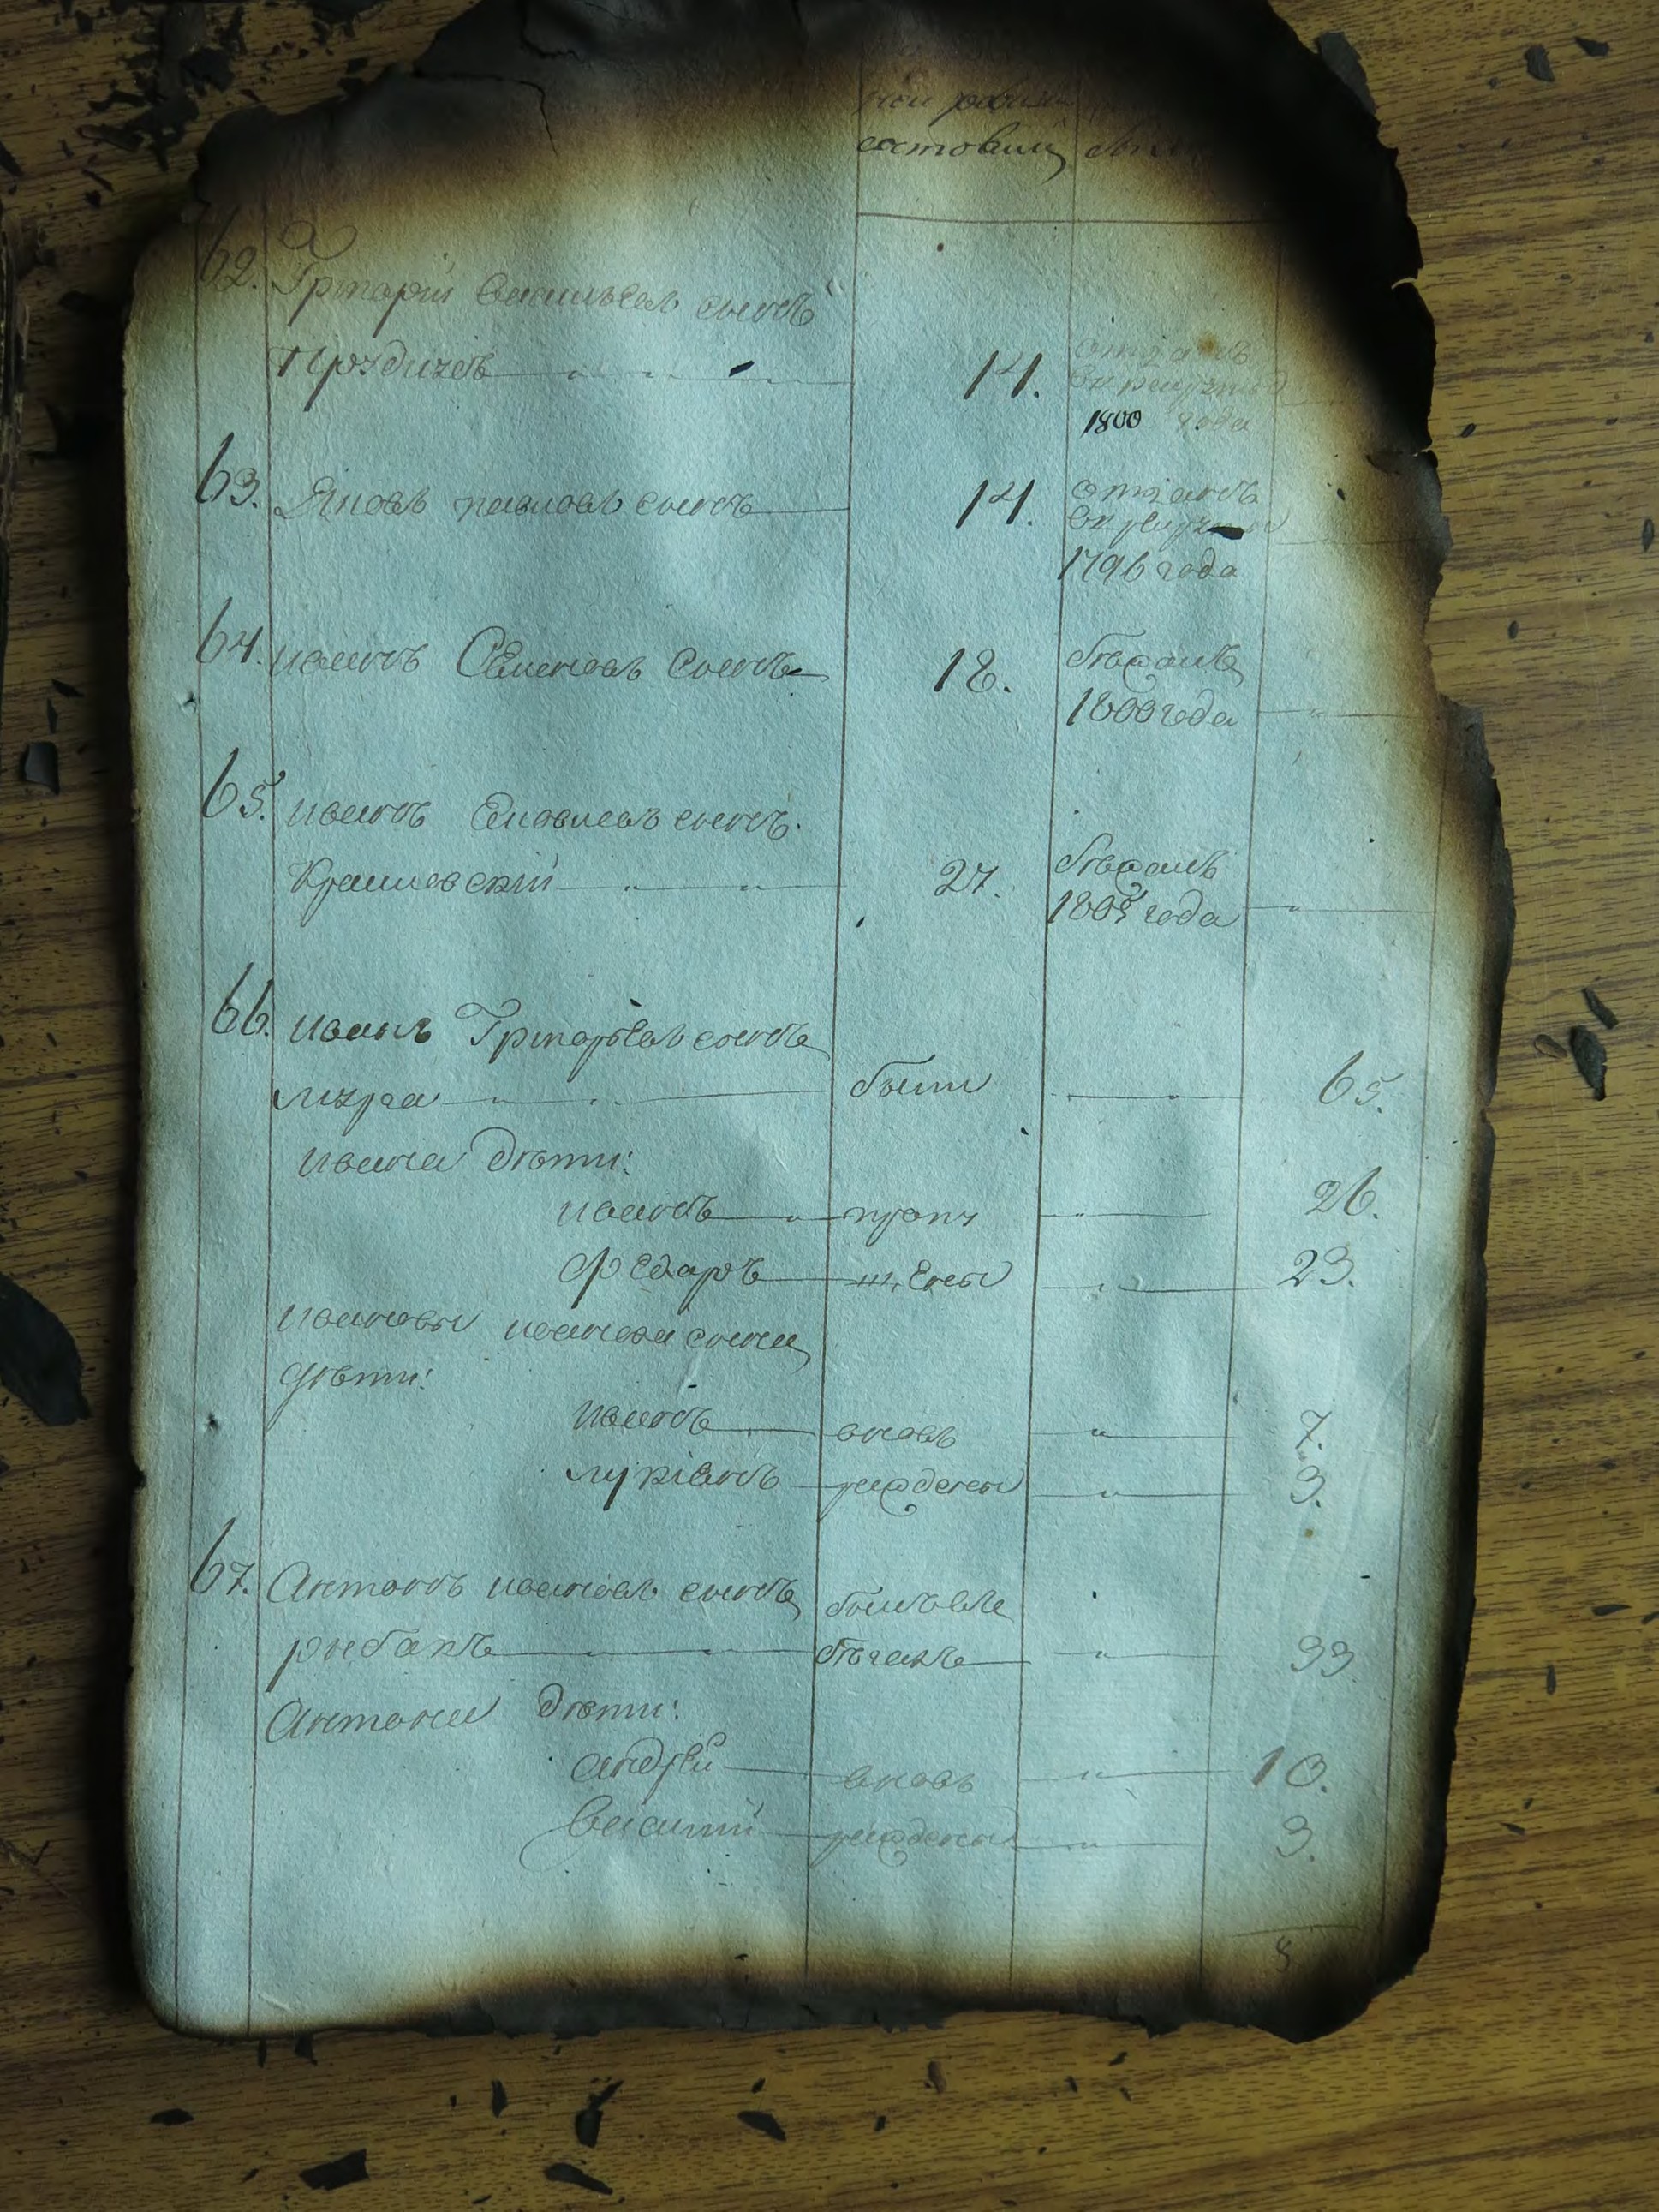 состоящих
62. Григорий Васильевъ сынъ
14. отданъ
в рекруты
1800 года
63. Яковъ павловъ сынъ 14. отданъ
в рекруты
1796 года
64. иванъ Семеновъ сынъ 18. бежалъ
1800 года
65. иванъ Яковлевъ сынъ
27. бежалъ
1805 года
66. иванъ Григорьевъ сынъ
были 65.
ивана дѣти:
иванъ пропу 26.
Федаръ щены 23.
ивановы иванова сына
дѣти:
иванъ вновь 7.
лукіянъ рождены 3.
67. Антонъ ивановъ сынъ былъ в
рыбакъ бѣгахъ 33
Антона дѣти:
андрей вновь 10.
Василий рождены 3.
8